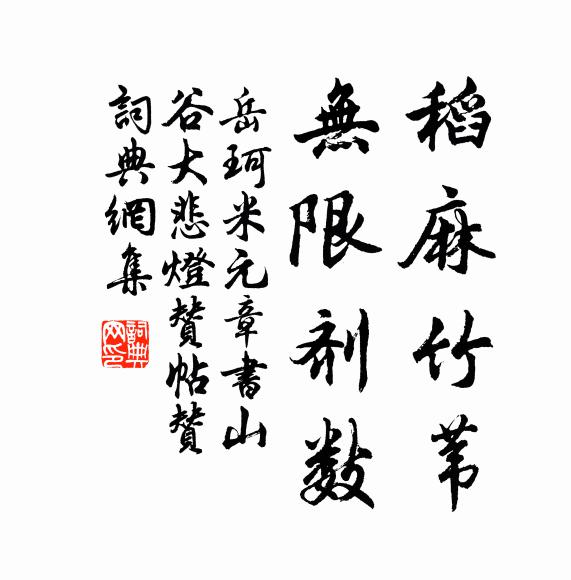 稻麻竹苇
無限剎数
岳珂米元章書山
谷大悲燈赞帖赞
詞典網集
詞典
网印